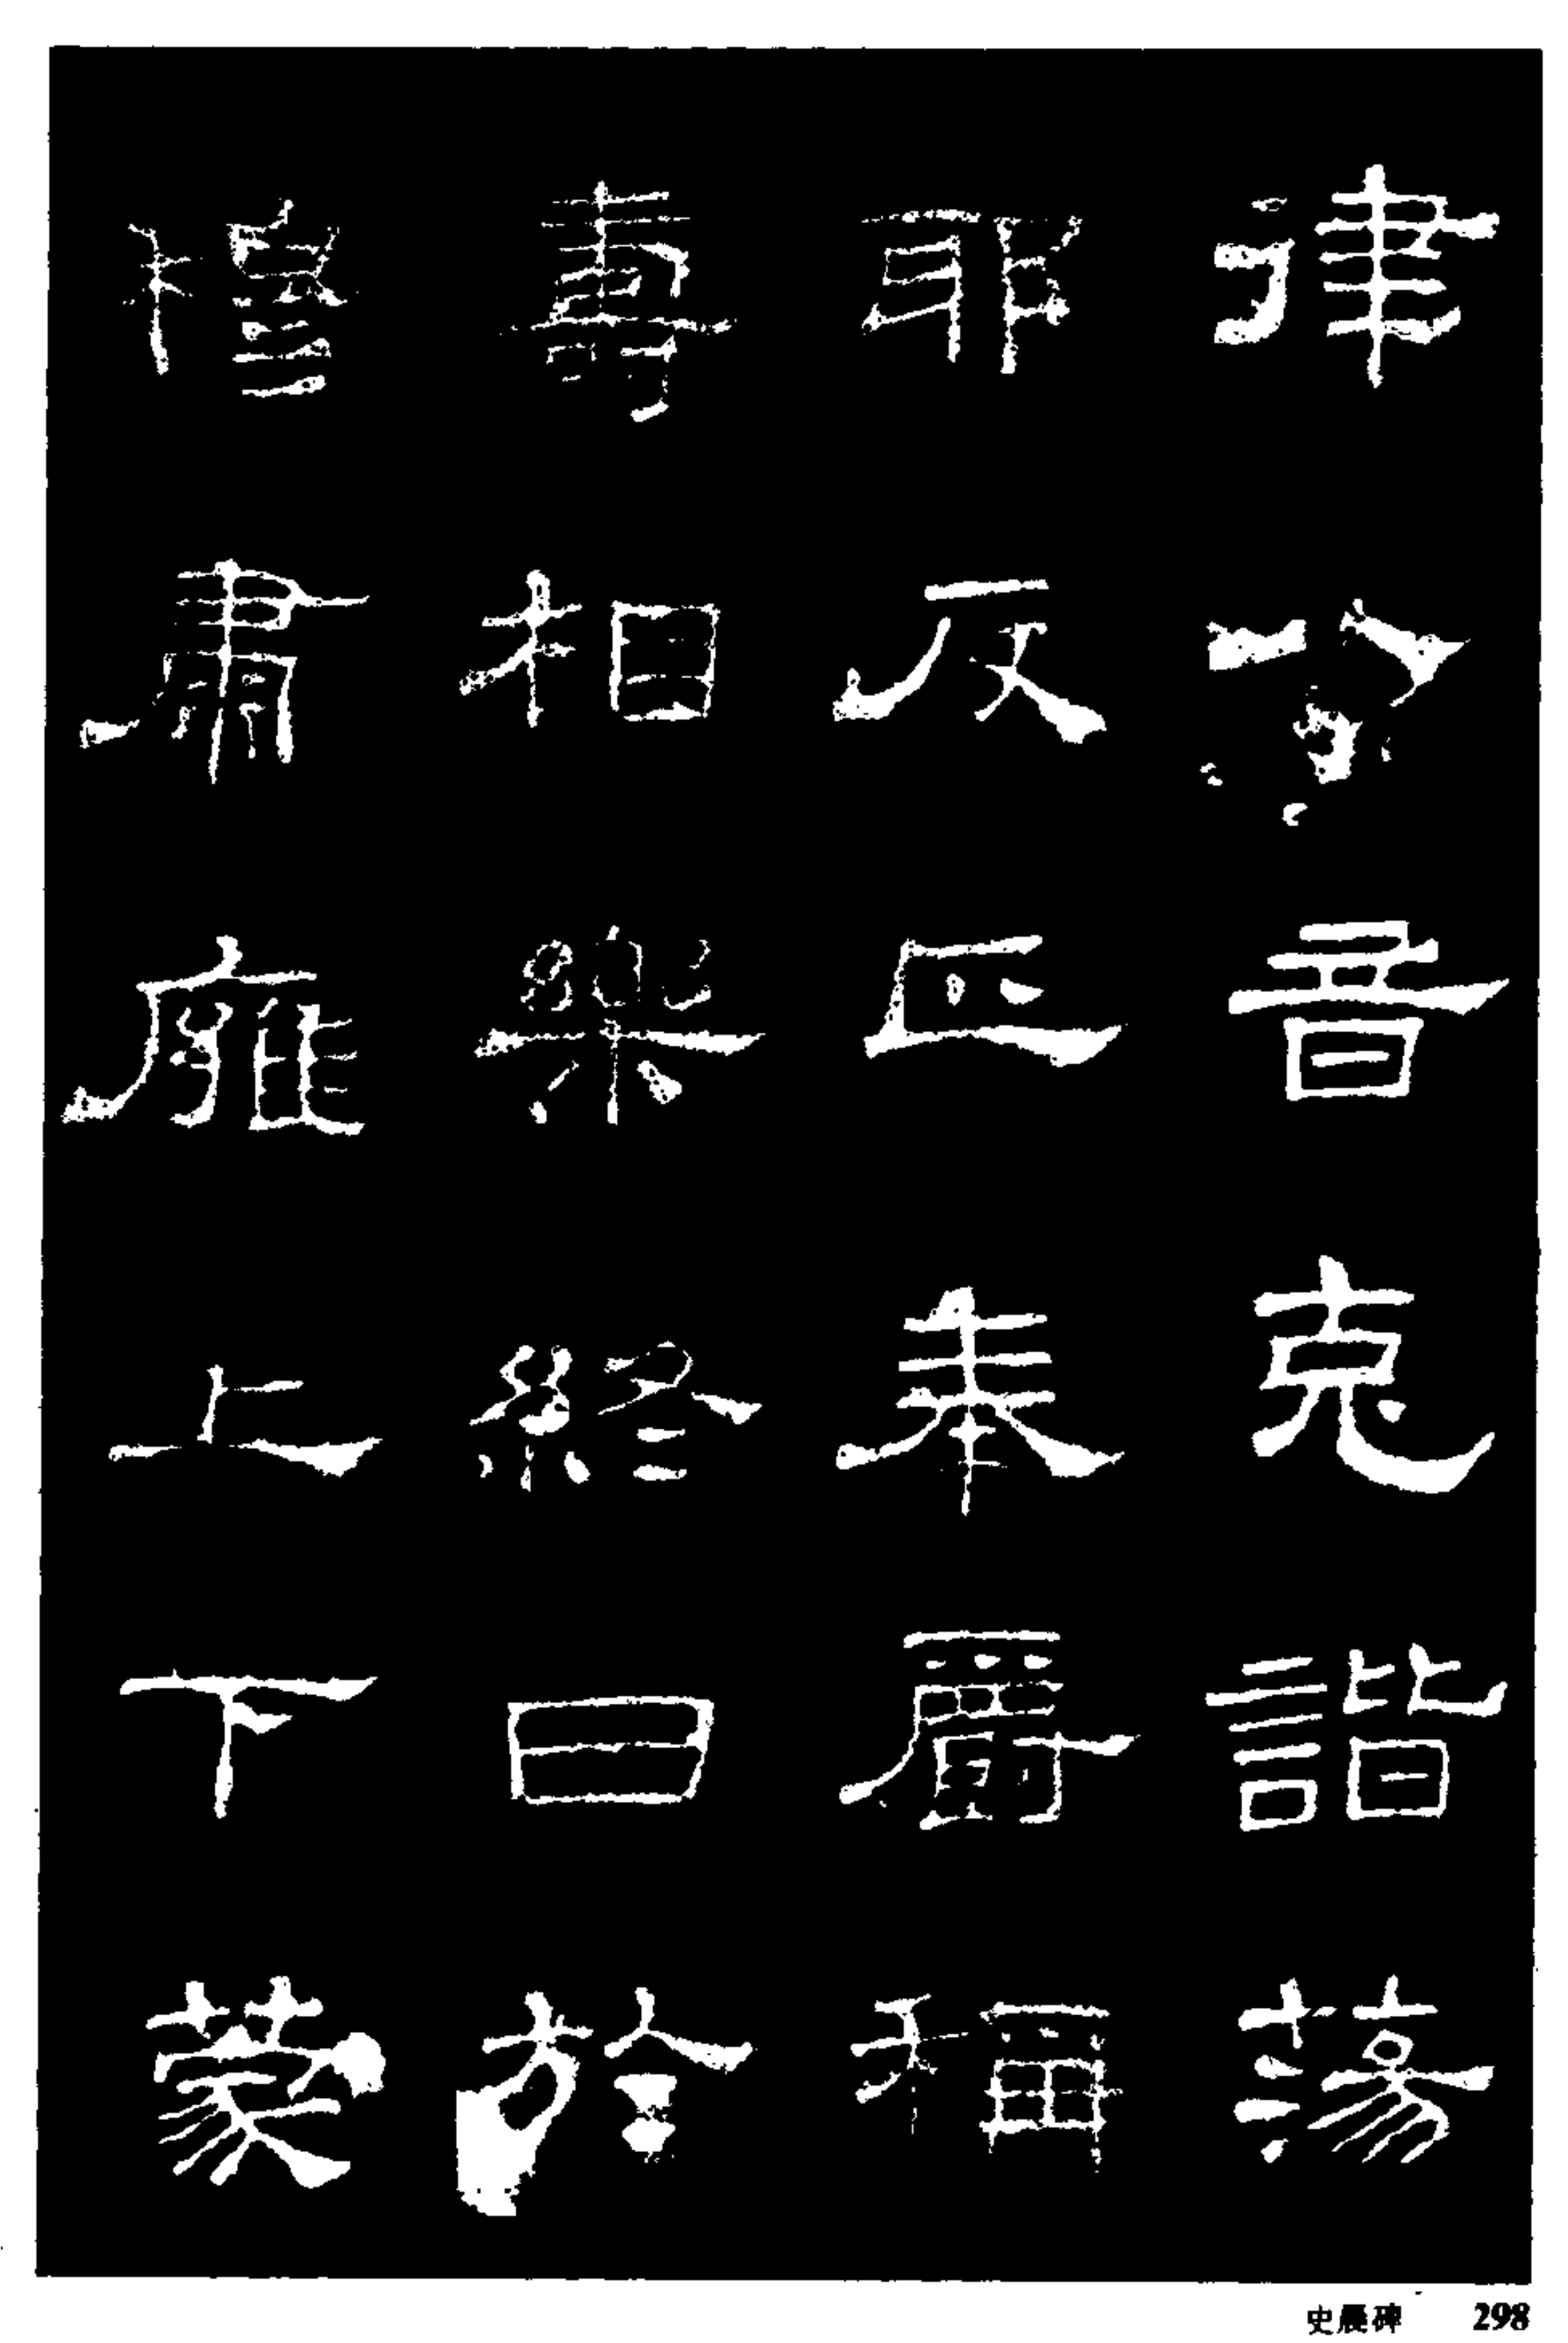 律八音克諧蕩
邪反正奉爵稱
壽相樂終日於
穆肅廱上下蒙
史晨碑 298